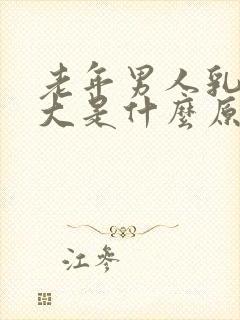 老年男人乳
大是什麼原
江參